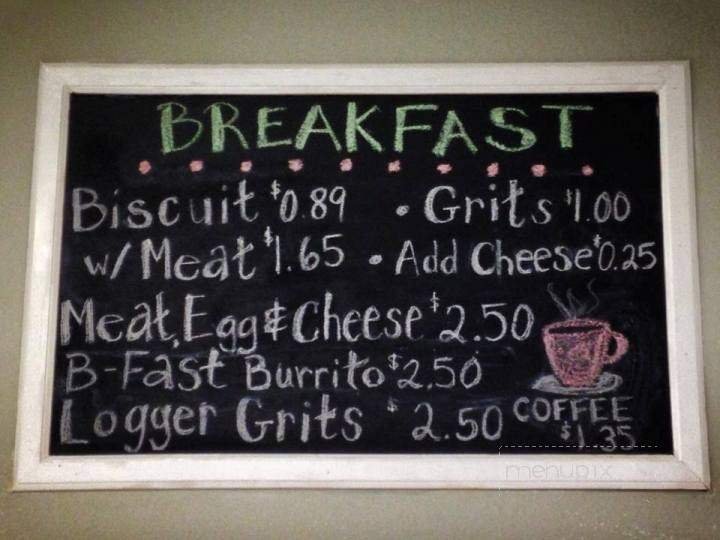 BREAKFAST
Biscuit $0.89 • Grits $1.00
w/ Meat $1.65 • Add Cheese $0.25
Meat, Egg & Cheese $2.50
B-Fast Burrito $2.50
Logger Grits $2.50
COFFEE
$1.35
menupix